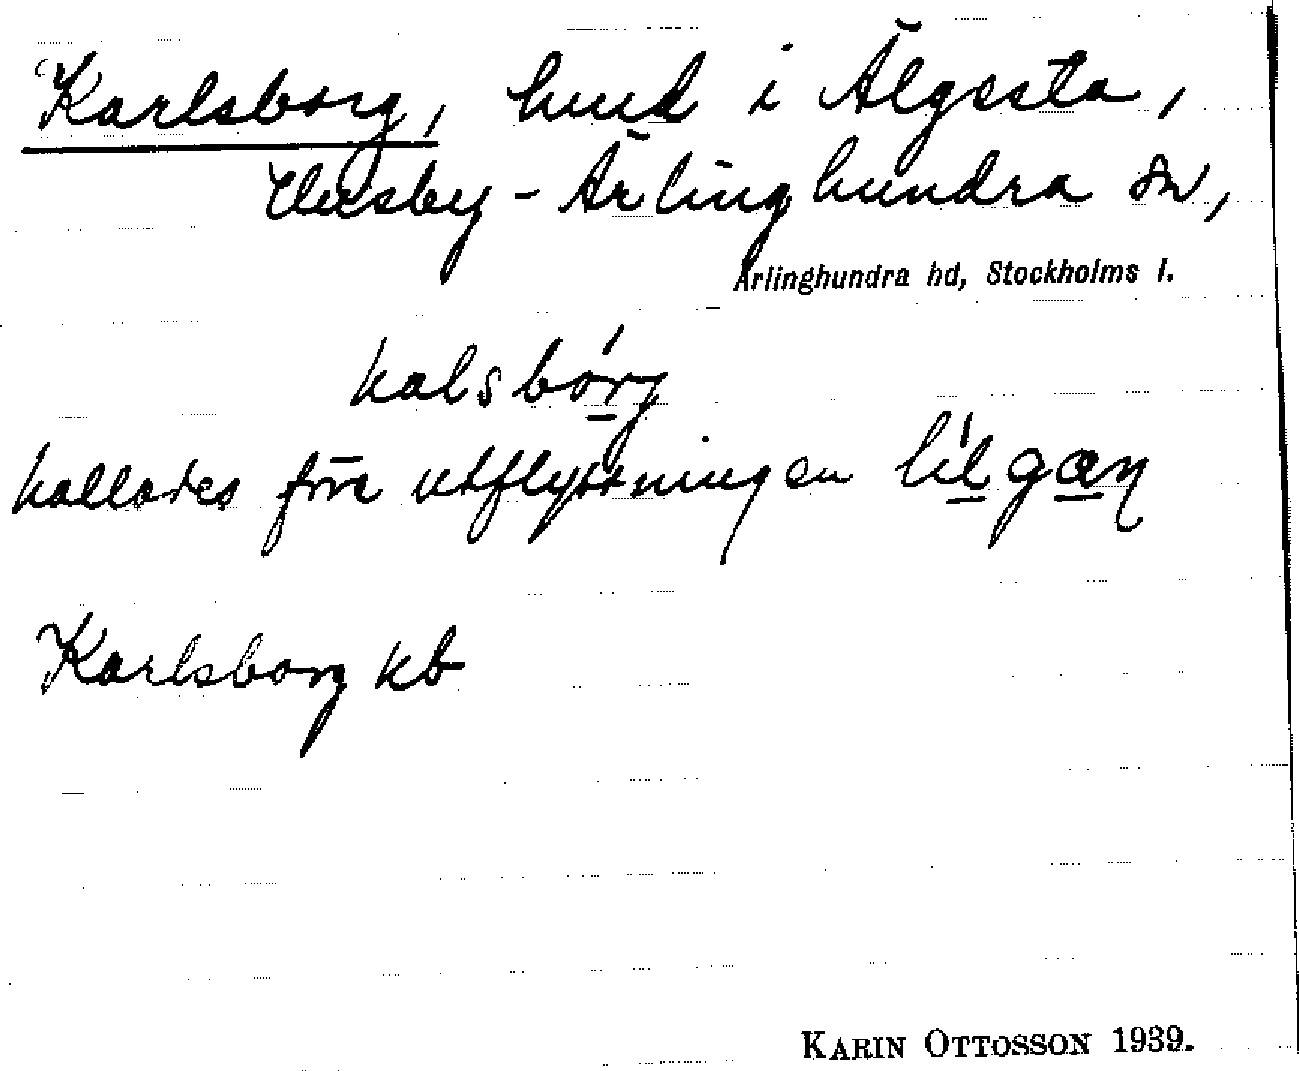 Karlsborg, hmd i Älgesta,
Husby-Ärlinghundra sn,
Ärlinghundra hd, Stockholms l.
kalsbórg
kallades före utflyttningen lílgæn
Karlsborg kb
KARIN OTTOSSON 1939.